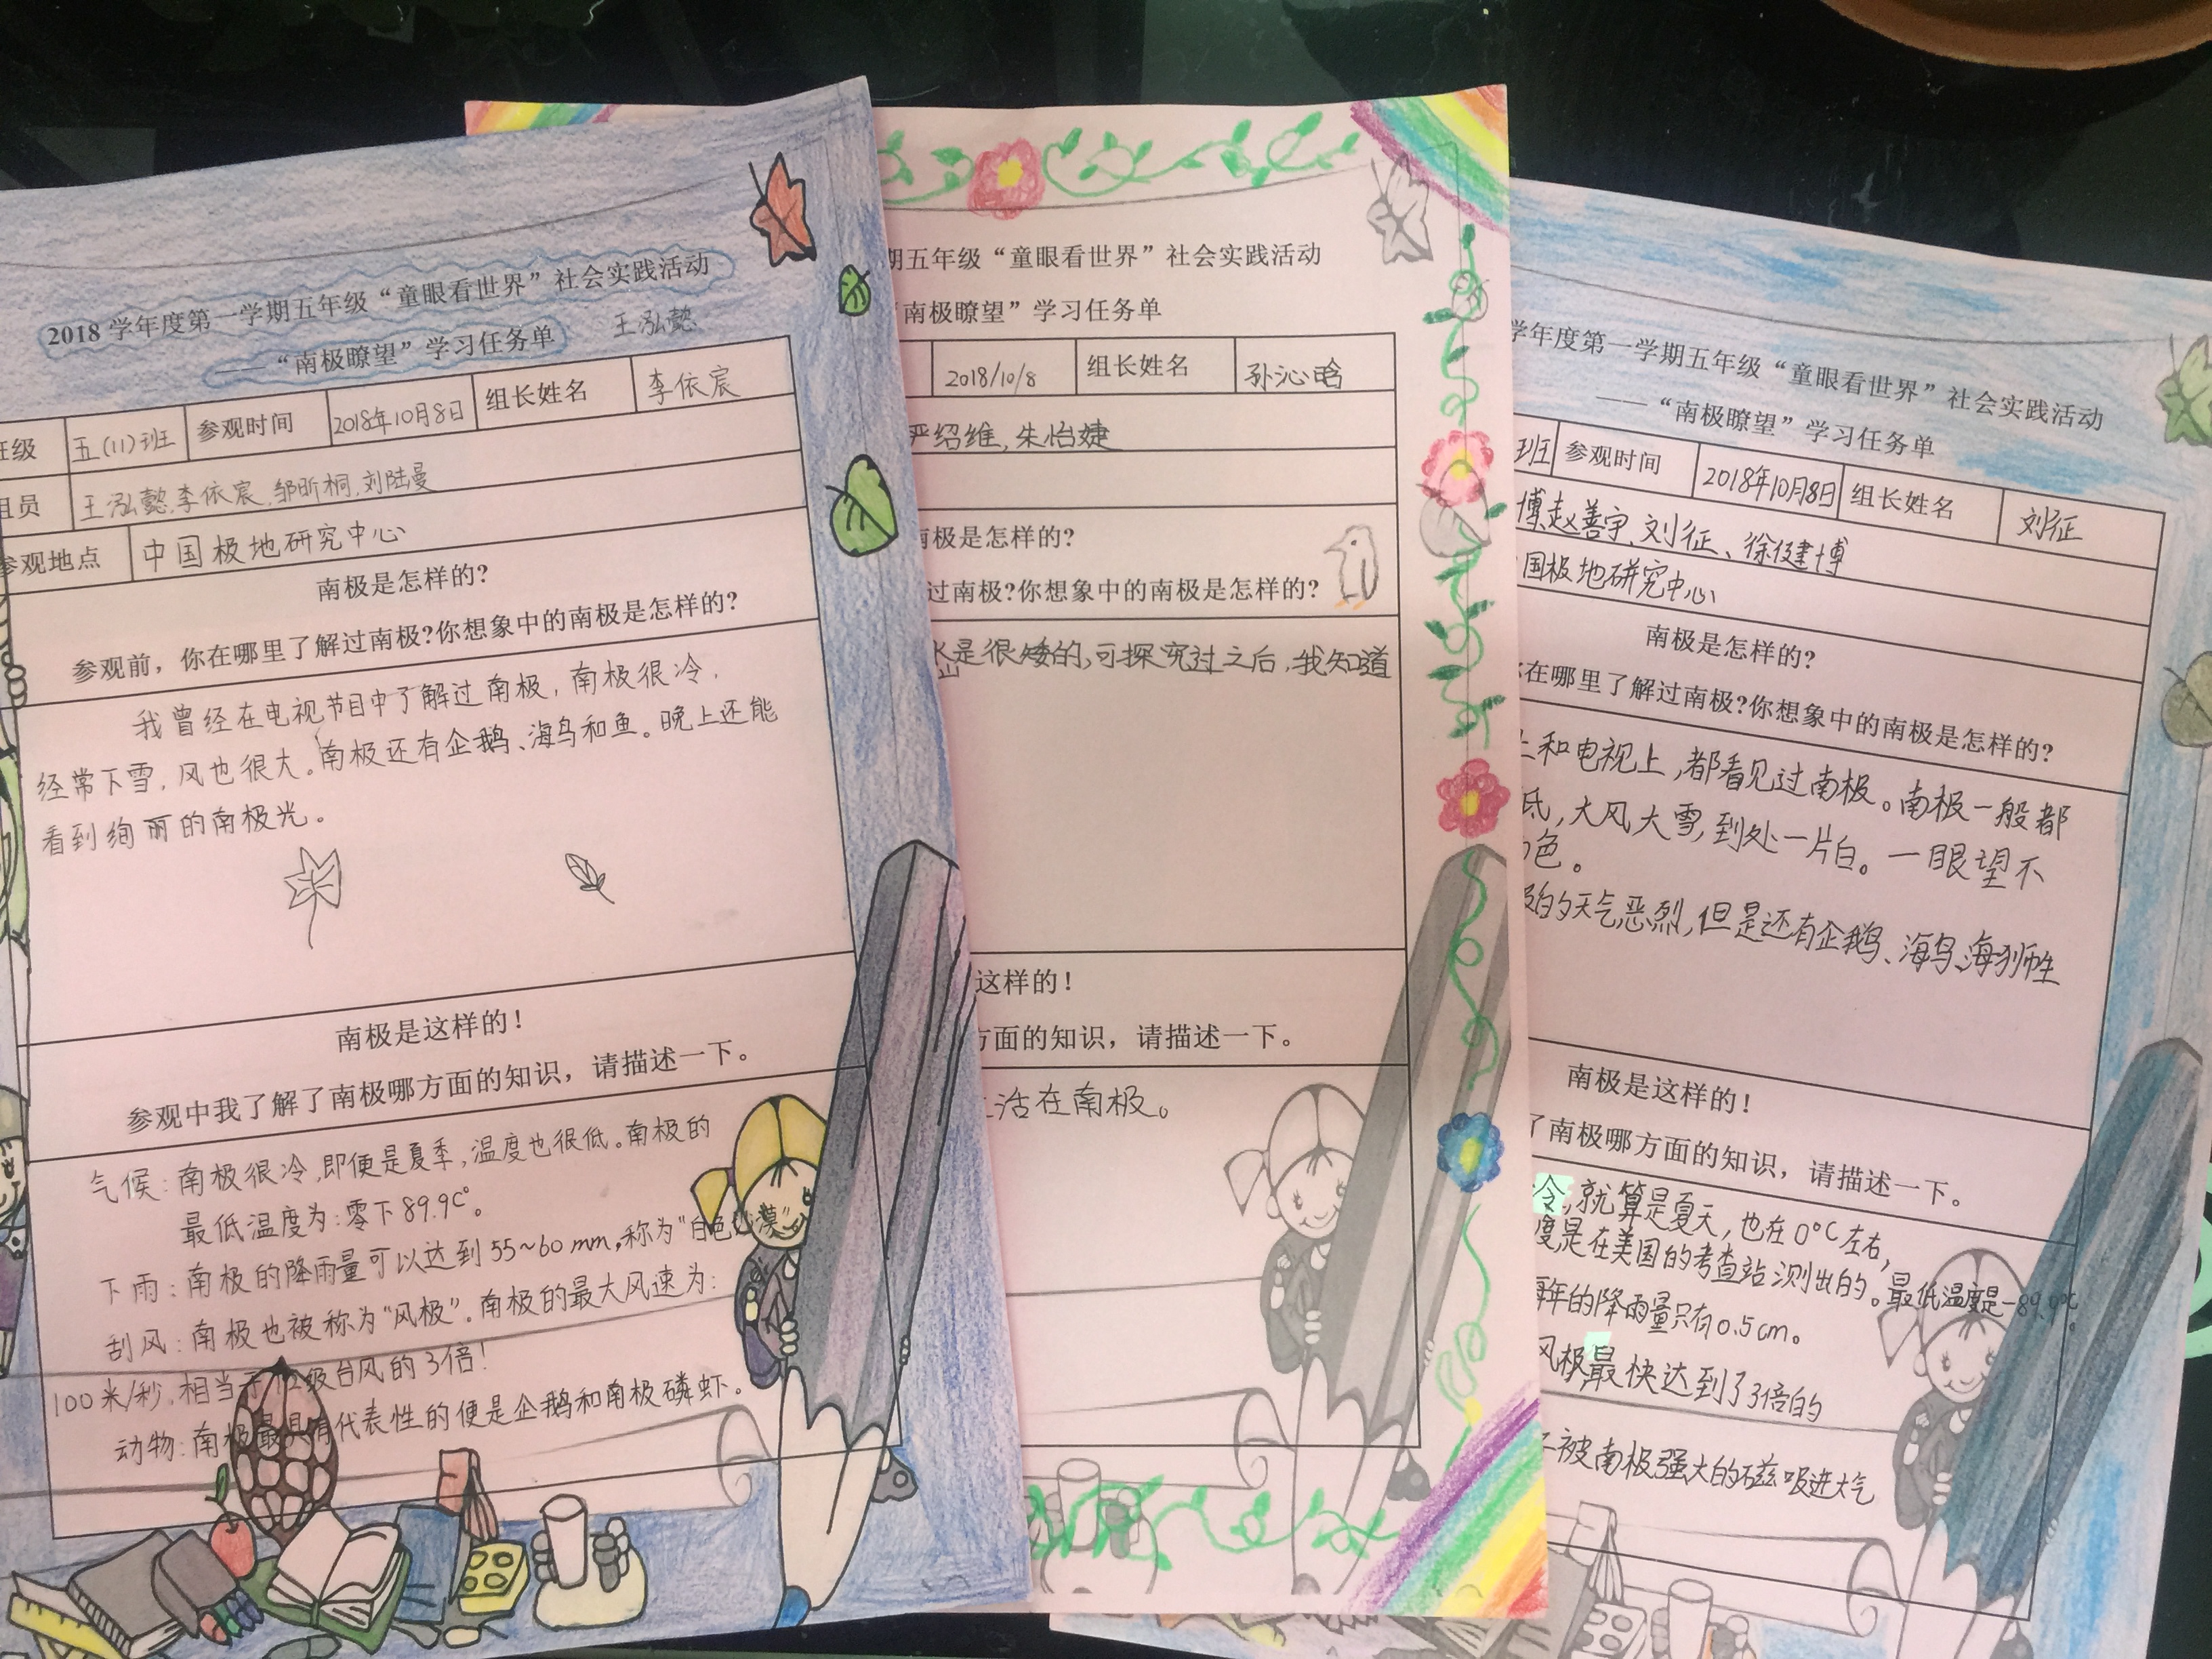 2018 学年度第一学期五年级“童眼看世界”社会实践活动
——“南极瞭望”学习任务单 王泓懿
班级 五(11)班 参观时间 2018年10月8日 组长姓名 李依宸
组员 王泓懿,李依宸,邹昕桐,刘陆曼
参观地点 中国极地研究中心
南极是怎样的?
参观前，你在哪里了解过南极?你想象中的南极是怎样的?
我曾经在电视节目中了解过南极，南极很冷，
经常下雪，风也很大。南极还有企鹅、海鸟和鱼。晚上还能
看到绚丽的南极光。
南极是这样的！
参观中我了解了南极哪方面的知识，请描述一下。
气候：南极很冷,即便是夏季，温度也很低。南极的
最低温度为：零下89.9C°。
下雨：南极的降雨量可以达到55~60mm,称为“白色沙漠”。
刮风：南极也被称为“风极”。南极的最大风速为：
100米/秒,相当于12级台风的3倍！
动物：南极最具有代表性的便是企鹅和南极磷虾。
期五年级“童眼看世界”社会实践活动
“南极瞭望”学习任务单
2018/10/8 组长姓名 孙沁晗
严绍维,朱怡婕
南极是怎样的?
过南极?你想象中的南极是怎样的?
是很矮的,可探究过之后,我知道
这样的！
方面的知识，请描述一下。
活在南极。
学年度第一学期五年级“童眼看世界”社会实践活动
——“南极瞭望”学习任务单
班 参观时间 2018年10月8日 组长姓名 刘征
博,赵善宇、刘征、徐侹建博
国极地研究中心
南极是怎样的?
在哪里了解过南极?你想象中的南极是怎样的?
上和电视上,都看见过南极。南极一般都
低,大风大雪,到处一片白。一眼望不
色。
的天气恶烈,但是还有企鹅、海鸟、海狮生
南极是这样的！
了南极哪方面的知识，请描述一下。
冷,就算是夏天,也在0°C左右,
度是在美国的考查站测出的。最低温度是-89.9°C。
每年的降雨量只有0.5cm。
风极最快达到了3倍的
被南极强大的磁吸进大气